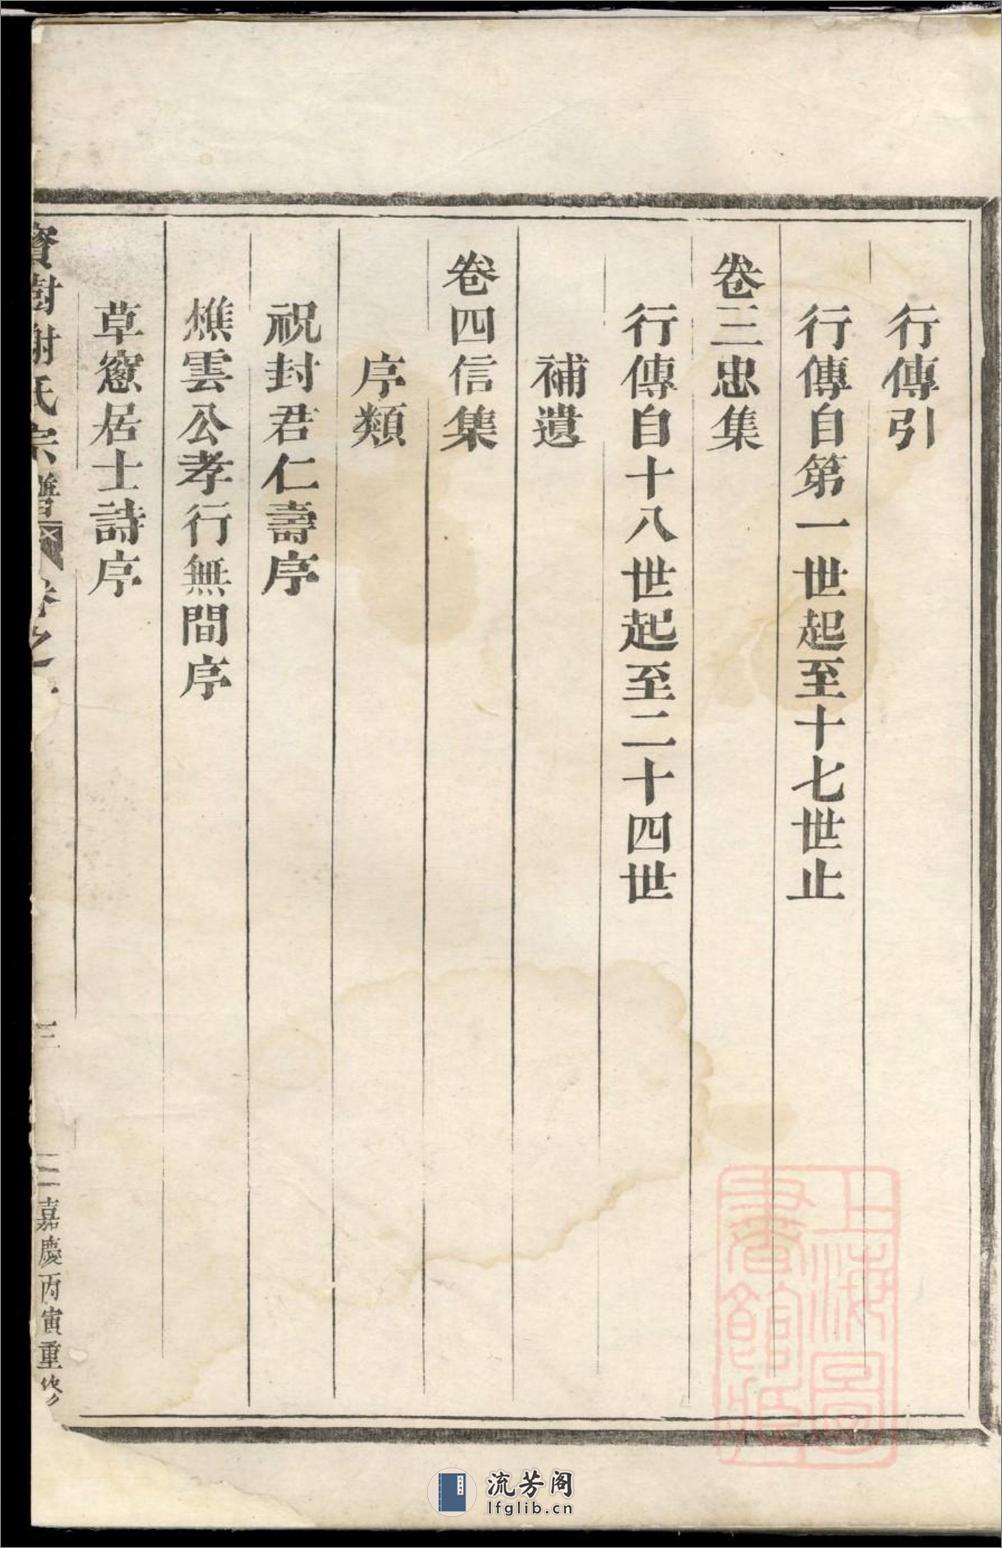 行傳引
行傳自第一世起至十七世止
卷三忠集
行傳自十八世起至二十四世
補遺
卷四信集
序類
祝封君仁壽序
樵雲公孝行無間序
草窻居士詩序
寶樹謝氏宗譜 卷之一 三 嘉慶丙寅重修
上海圖書館藏
流芳阁
lfglib.cn